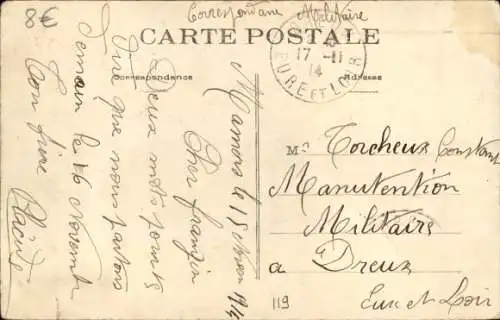 8€
Correspondance Militaire
CARTE POSTALE
Correspondance
Adresse
17 -11
14
EURE ET LOIR
Mamers le 15 9bre 1914
Cher frangin
Deux mots pour te
dire que nous partons
demain le 16 Novembre
Ton frère
Placide
M. Torcheux Constant
Manutention
Militaire
a Dreux
Eure et Loir
119